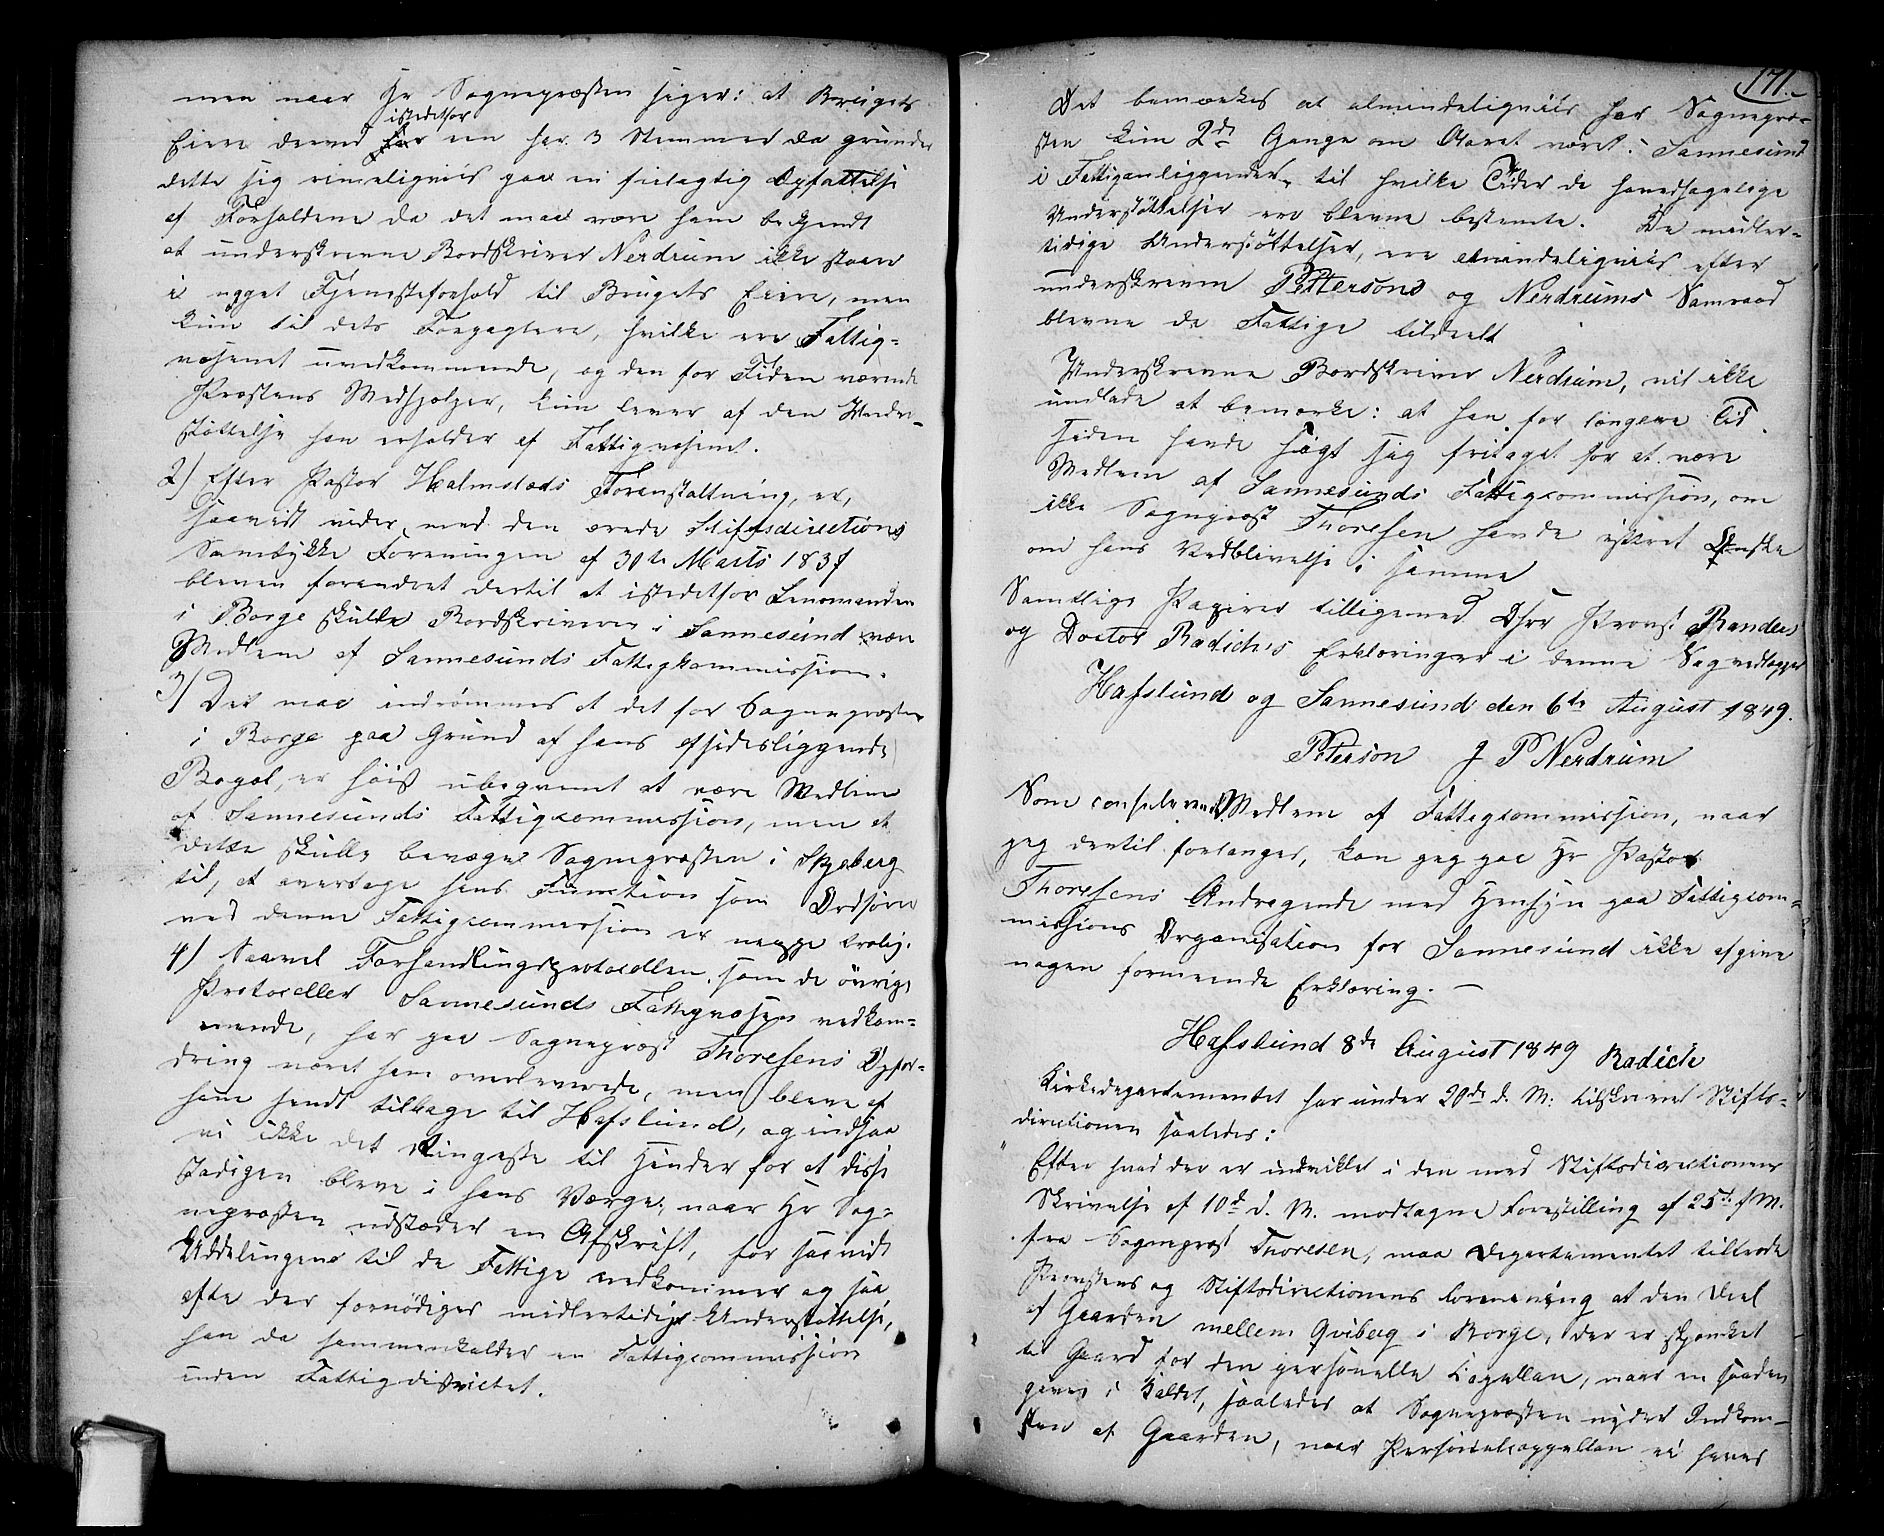 men naar Hr Sognepræsten siger: at Brugets
istedetfor
Eiere derved for een har 3 Stemmer da grunder
dette sig rimeligviis paa en feilagtig Opfattelse
af Forholdene da det maa være ham bekjendt
at underskrevne Bordskriver Nerdrum ikke staaer
i noget Tjenesteforhold til Brugets Eiere, men
kun til dets Forpagtere, hvilke ere Fattig-
væsenet uvedkommende, og den for Tiden værende
Præstens Medhjelper, kun lever af den Under-
støttelse han erholder af Fattigvæsenet.
2) Efter Pastor Halmstads Foranstaltning, er,
saavidt vides, med den ærede Stiftsdirections
Samtykke Foreningen af 30te Marts 183
bleven forandret dertil at istedetfor Lensmanden
i Borge skulle Bordskriveren i Sannesund være
Medlem af Sannesunds Fattigkommission.
3) Det maa indrømmes at det for Sognepræsten
i Borge paa Grund af hans afsidesliggende
Bopæl, er høist ubeqvemt at være Medlem
af Sannesunds Fattigcommission, men at
dette skulle bevæge Sognepræsten i Skjeberg
til, at overtage hans Function som Ordfører
ved denne Fattigcommission er neppe trolig.
4) Saavel Forhandlingsprotocollen som de øvrige
Protocoller Sannesunds Fattigvæsen vedkom-
mende, har paa Sognepræst Thoresens Opfor-
dring været ham overleverede, men bleve af
ham sendt tilbage til Hafslund, og indsaa
vi ikke det Ringeste til Hinder for at disse
stadigen bleve i hans Værge, naar Hr Sog-
nepræsten udstæder en Afskrift, for saavidt
Uddelingens til de Fattige vedkommer og saa
ofte der fornødiges midlertidige Understøttelse,
han da sammenkalder en Fattigcommission
inden Fattigdistrictet.
171.
Det bemærkes at almindeligviis har Sognepræ-
sten kun 2de Gange om Aaret været i Sannesund
i Fattiganliggender, til hvilke Tider de hovedsagelige
Understøttelser ere blevne bestemte. De midler-
tidige Understøttelser, ere almindeligviis efter
underskrevne Pettersons og Nerdrums Samraad
blevne de Fattige tildeelt
Underskrevne Bordskriver Nerdrum, vil ikke
undlade at bemærke: at han for længere Tid
siden havde søgt sig fritaget for at være
Medlem af Sannesunds Fattigcommission, om
ikke Sognepræst Thoresen havde yttret Ønske
om hans Vedblivelse i samme
Samtlige Papirer tilligemed DHrr Provst Randers
og Doctor Radich's Erklæringer i denne Sag vedlægges
Hafslund og Sannesund den 6te August 1849.
Peterson J P Nerdrum
Som consulerende Medlem af Fattigcommission, naar
jeg dertil forlanges, kan jeg paa Hr Pastor
Thoresens Andragende med Hensyn paa Fattigcom-
missions Organisation for Sannesund ikke afgive
nogen formeende Erklæring. —
Hafslund 8de August 1849 Radich
Kirkedepartementet har under 20de d. M: tilskrevet Stifts-
directionen saaledes:
"Efter hvad der er indviklet i den med Stiftsdirectionens
Skrivelse af 10de d. M. modtagne Forestilling af 25de f M.
fra Sognepræst Thoresen, maa Departementet tiltræde
Provstens og Stiftsdirectionens Formening at den Deel
af Gaarden mellem Qviberg i Borge, der er skjænket
til Gaard for den personelle Capellan, naar en saadan
gives i Kaldet, saaledes at Sognepræsten nyder Indkom-
sten af Gaarden, naar Personelcapellan ei haves